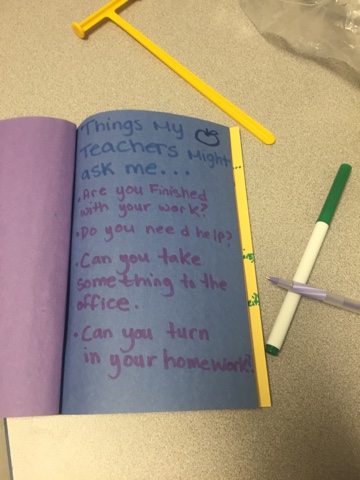 Things My
Teachers Might
ask me...
• Are you Finished
with your work?
• Do you need help?
• Can you take
something to the
office.
• Can you turn
in your homework?